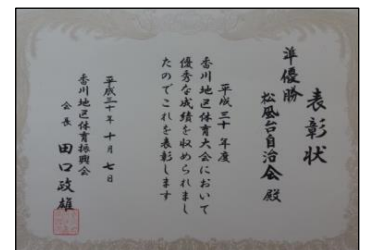 表彰状
準優勝
松風台自治会 殿
平成三十年度
香川地区体育大会において
優秀な成績を収められまし
たのでこれを表彰します
平成三十年十月七日
香川地区体育振興会
会長 田口政雄